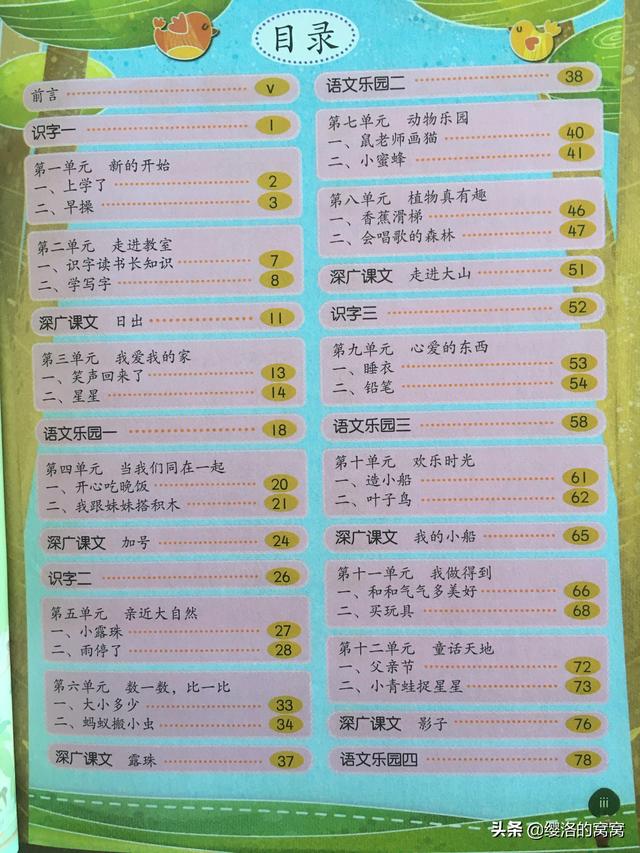 目录
前言 v
识字一 1
第一单元 新的开始
一、上学了 2
二、早操 3
第二单元 走进教室
一、识字读书长知识 7
二、学写字 8
深广课文 日出 11
第三单元 我爱我的家
一、笑声回来了 13
二、星星 14
语文乐园一 18
第四单元 当我们同在一起
一、开心吃晚饭 20
二、我跟妹妹搭积木 21
深广课文 加号 24
识字二 26
第五单元 亲近大自然
一、小露珠 27
二、雨停了 28
第六单元 数一数，比一比
一、大小多少 33
二、蚂蚁搬小虫 34
深广课文 露珠 37
语文乐园二 38
第七单元 动物乐园
一、鼠老师画猫 40
二、小蜜蜂 41
第八单元 植物真有趣
一、香蕉滑梯 46
二、会唱歌的森林 47
深广课文 走进大山 51
识字三 52
第九单元 心爱的东西
一、睡衣 53
二、铅笔 54
语文乐园三 58
第十单元 欢乐时光
一、造小船 61
二、叶子鸟 62
深广课文 我的小船 65
第十一单元 我做得到
一、和和气气多美好 66
二、买玩具 68
第十二单元 童话天地
一、父亲节 72
二、小青蛙捉星星 73
深广课文 影子 76
语文乐园四 78
iii
头条 @缨洛的窝窝